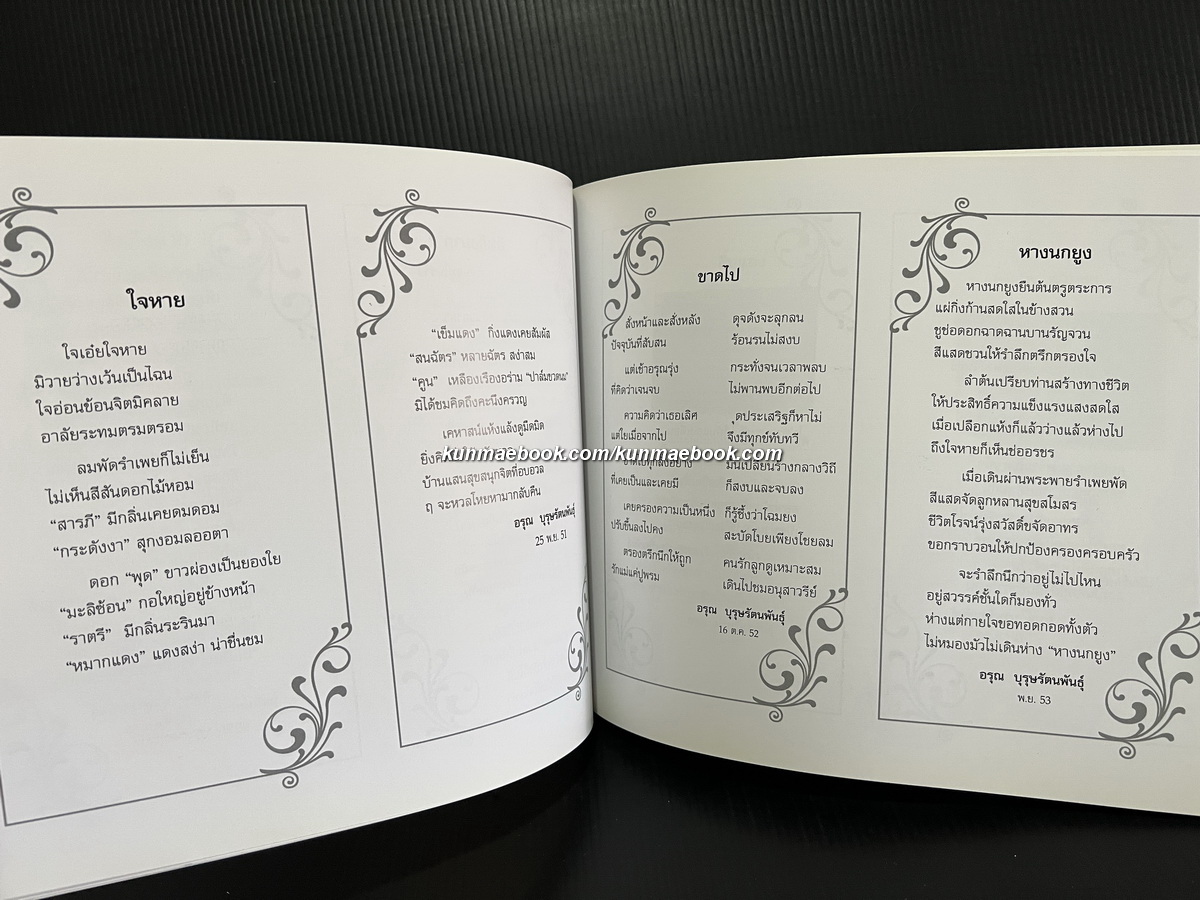 ใจหาย
ใจเอ๋ยใจหาย
มิวายว่างเว้นเป็นไฉน
ใจอ่อนข้อนจิตมิคลาย
อาลัยระทมตรมตรอม
ลมพัดรำเพยก็ไม่เย็น
ไม่เห็นสีสันดอกไม้หอม
“สารภี” มีกลิ่นเคยดมดอม
“กระดังงา” สุกงอมลออตา
ดอก “พุด” ขาวผ่องเป็นยองใย
“มะลิซ้อน” กอใหญ่อยู่ข้างหน้า
“ราตรี” มีกลิ่นระรินมา
“หมากแดง” แดงสง่า น่าชื่นชม
“เข็มแดง” กิ่งแดงเคยสัมผัส
“สนฉัตร” หลายฉัตร สง่าสม
“คูน” เหลืองเรืองอร่าม “ปาล์มขวดนม”
มิได้ชมคิดถึงคะนึงครวญ
เคหาสน์แห้งแล้งดูมืดมิด
ยิ่งคิ
บ้านแสนสุขสนุกจิตที่อบอวล
ฤ จะหวลโหยหามากลับคืน
อรุณ บุรุษรัตนพันธุ์
25 พ.ย. 51
ขาดไป
สั่งหน้าและสั่งหลัง ดุจดังจะลุกลน
ปัจจุบันที่สับสน ร้อนรนไม่สงบ
แต่เช้าอรุณรุ่ง กระทั่งจนเวลาพลบ
ที่คิดว่าเจนจบ ไม่พานพบอีกต่อไป
ความคิดว่าเธอเลิศ ุดประเสริฐก็หาไม่
แต่ใยเมื่อจากไป จึงมีทุกข์ทับทวี
kunmaebook.com/kunmaebook.com
มันเปลี่ยนร้างกลางวิถี
ที่เคยเป็นและเคยมี ก็สงบและจบลง
เคยครองความเป็นหนึ่ง ก็รู้ซึ้งว่าโฉมยง
ปรับขึ้นลงไปคง สะบัดโบยเพียงโชยลม
ตรองตรึกนึกให้ถูก คนรักลูกดูเหมาะสม
รักแม่แค่ปูพรม เดินไปชมอนุสาวรีย์
อรุณ บุรุษรัตนพันธุ์
16 ต.ค. 52
หางนกยูง
หางนกยูงยืนต้นตรูตระการ
แผ่กิ่งก้านสดใสในข้างสวน
ชูช่อดอกฉาดฉานบานรัญจวน
สีแสดชวนให้รำลึกตรึกตรองใจ
ลำต้นเปรียบท่านสร้างทางชีวิต
ให้ประสิทธิ์ความแข็งแรงแสงสดใส
เมื่อเปลือกแห้งก็แล้วว่างแล้วห่างไป
ถึงใจหายก็เห็นช่ออรชร
เมื่อเดินผ่านพระพายรำเพยพัด
สีแสดจัดลูกหลานสุขสโมสร
ชีวิตโรจน์รุ่งสวัสดิ์ขจัดอาทร
ขอกราบวอนให้ปกป้องครองครอบครัว
จะรำลึกนึกว่าอยู่ไม่ไปไหน
อยู่สวรรค์ชั้นใดก็มองทั่ว
ห่างแต่กายใจขอทอดกอดทั้งตัว
ไม่หมองมัวไม่เดินห่าง “หางนกยูง”
อรุณ บุรุษรัตนพันธุ์
พ.ย. 53